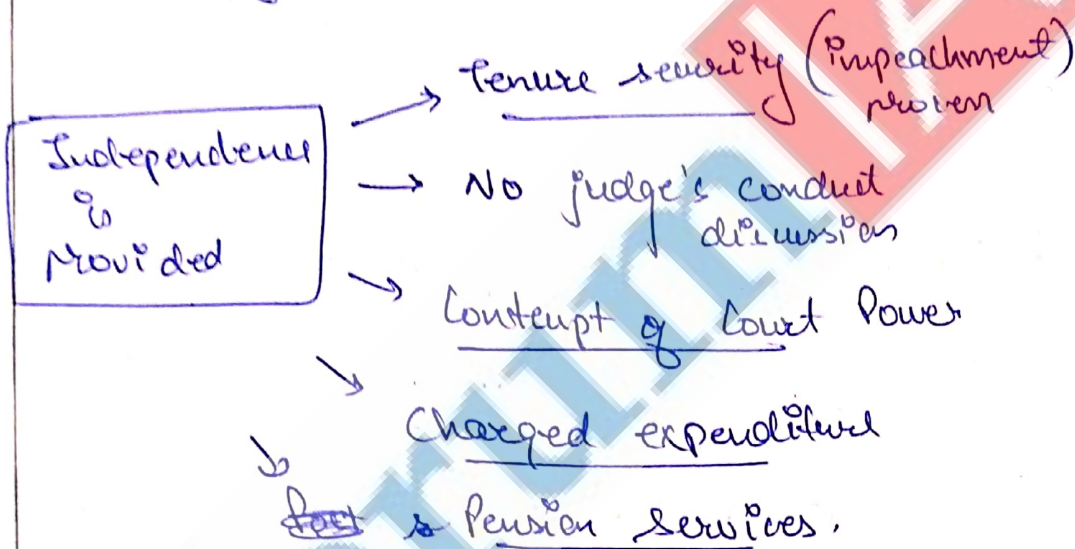 Independence
is
provided
Tenure security (impeachment)
proven
No judge's conduct
discussion
Contempt of Court Power
Charged expenditure
& Pension services.
rum